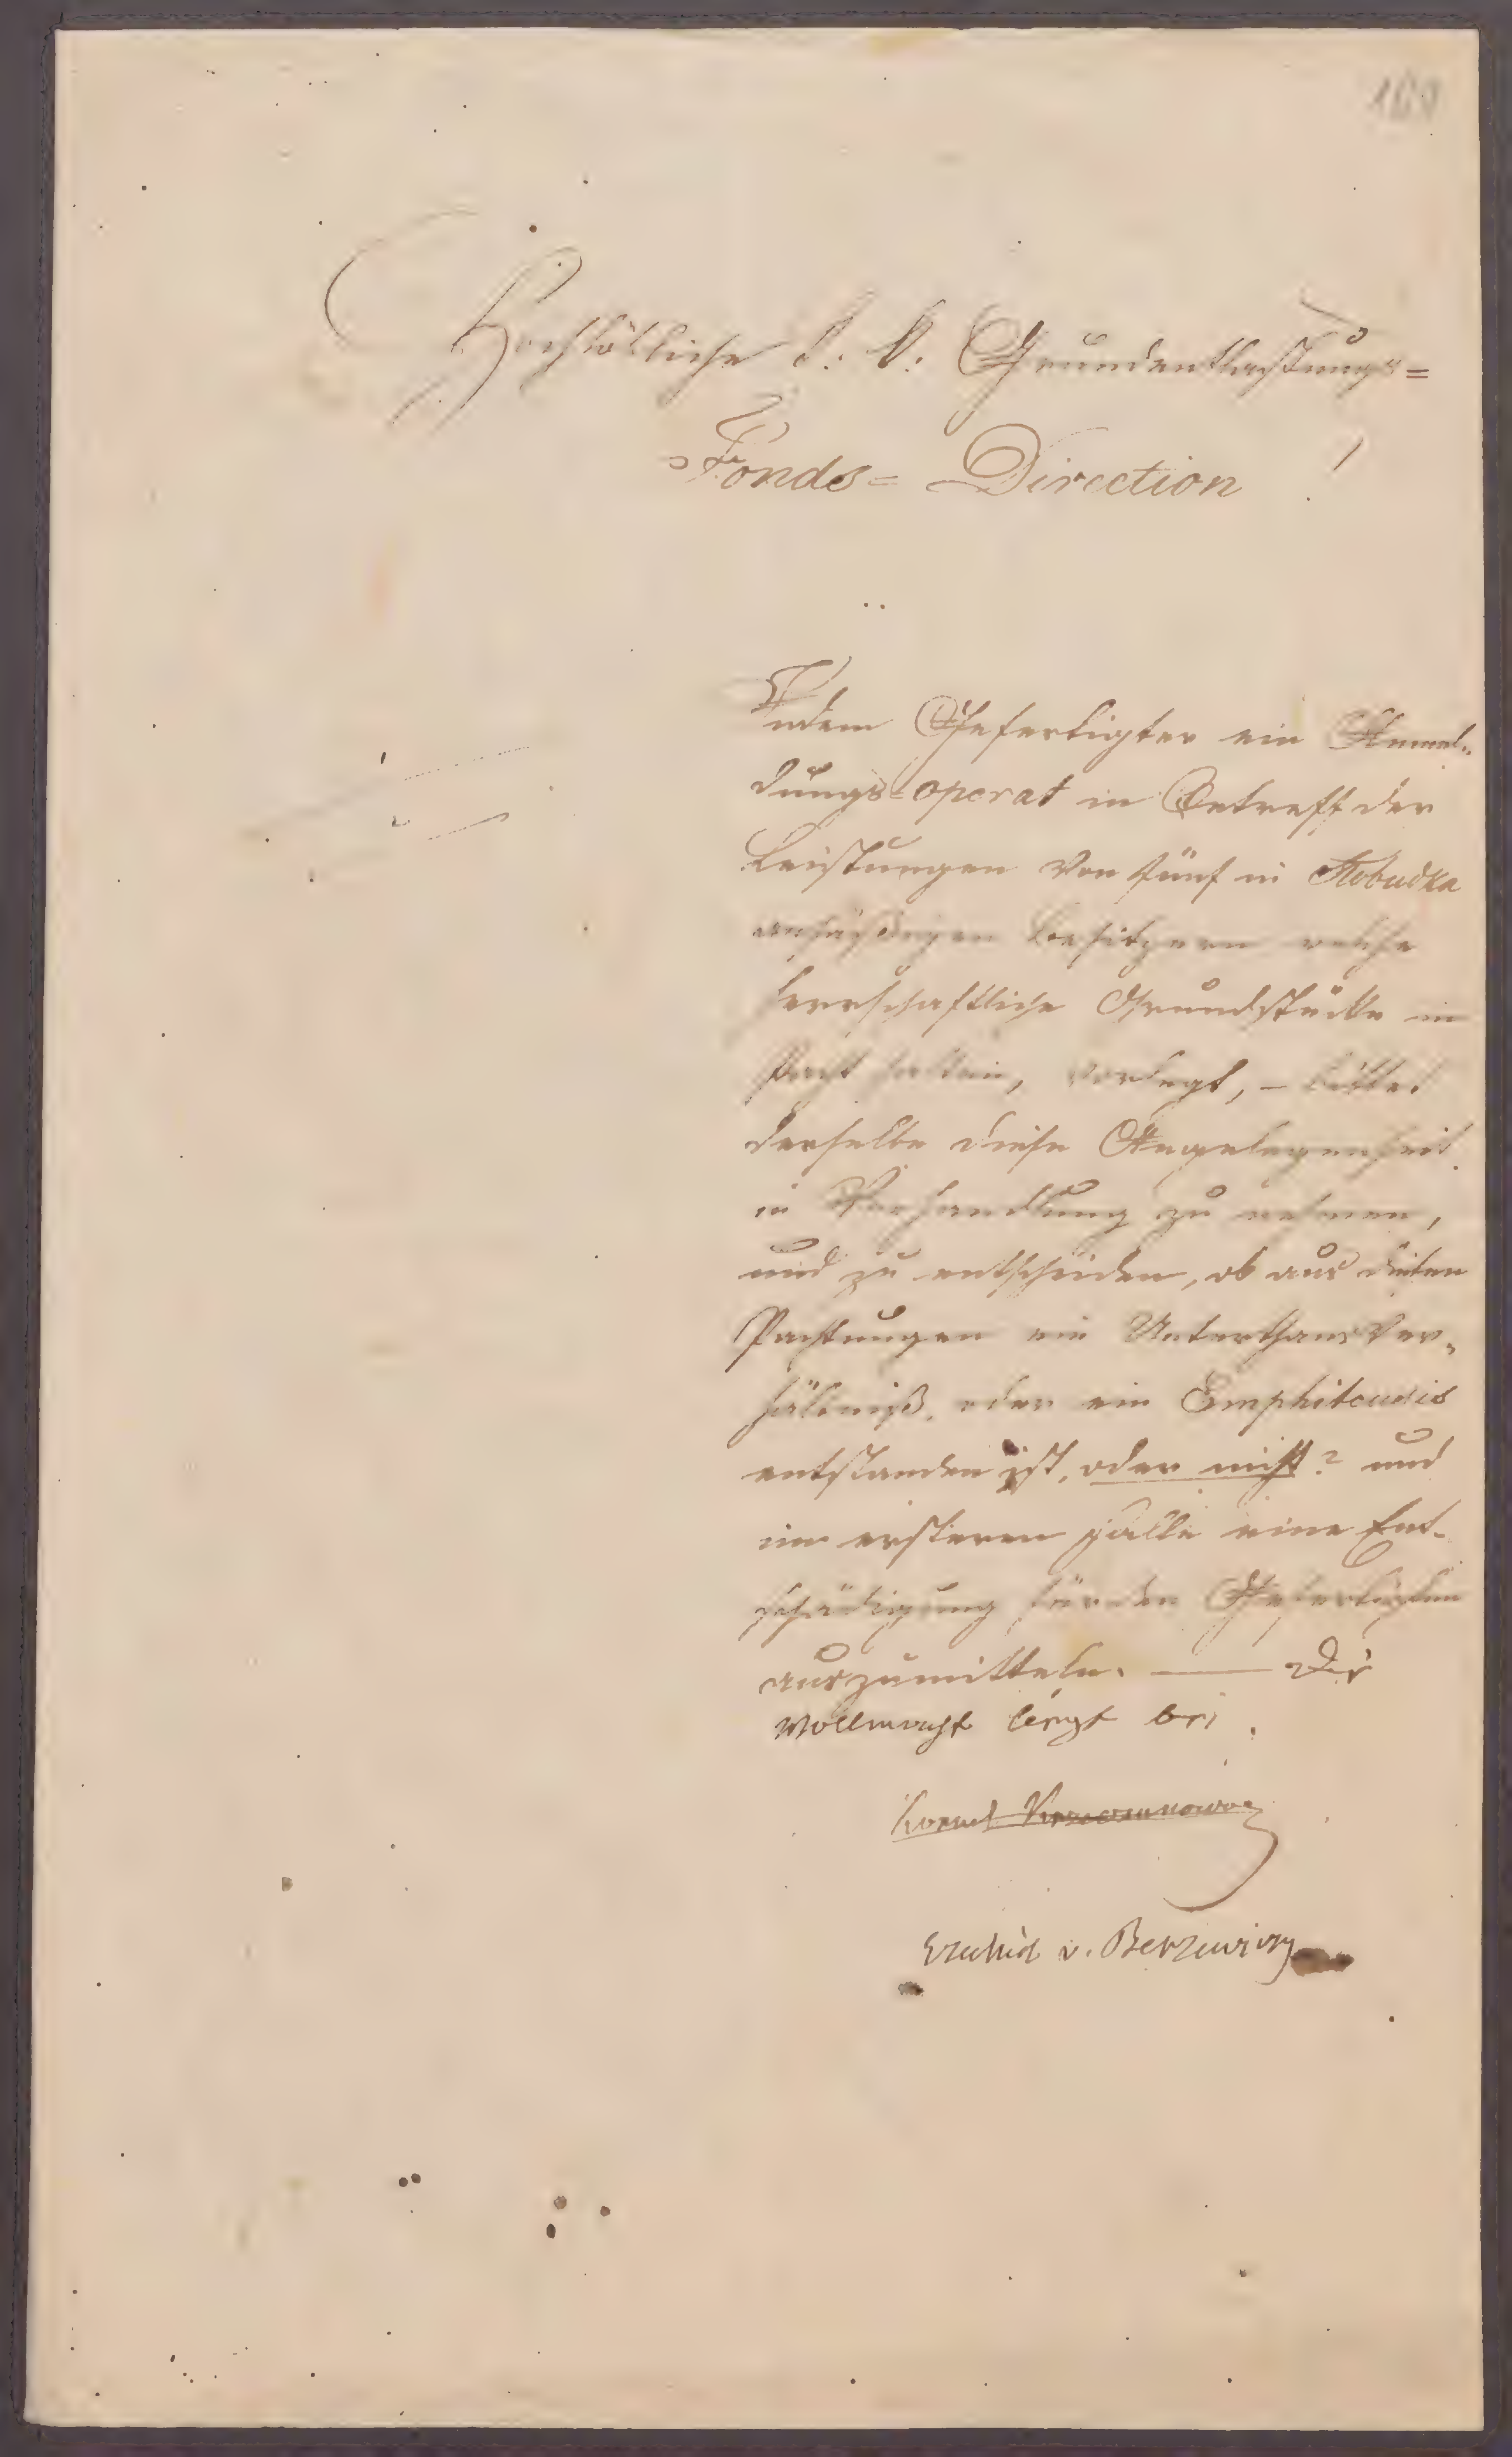 Hochlöbliche k: k: Grundentlastungs=
Fonds= Direction !
Indem Gefertigter ein Anmel„
dungs=operat in Betreff der
Leistungen von fünf in
ansäßigen Besitzern welche
herrschaftliche Grundstücke in
Pacht halten, vorlegt, – bittet
derselbe diese Angelegenheit
in Verhandlung zu nehmen,
und zu entscheiden, ob aus diesen
Pachtungen ein Unterthansver„
hältniß, oder ein Emphiteusis
entstanden ist, oder nicht? und
im ersteren Falle eine Ent-
schädigung für den Gefertigten
auszumitteln. — Die
Vollmacht liegt bei.
v.